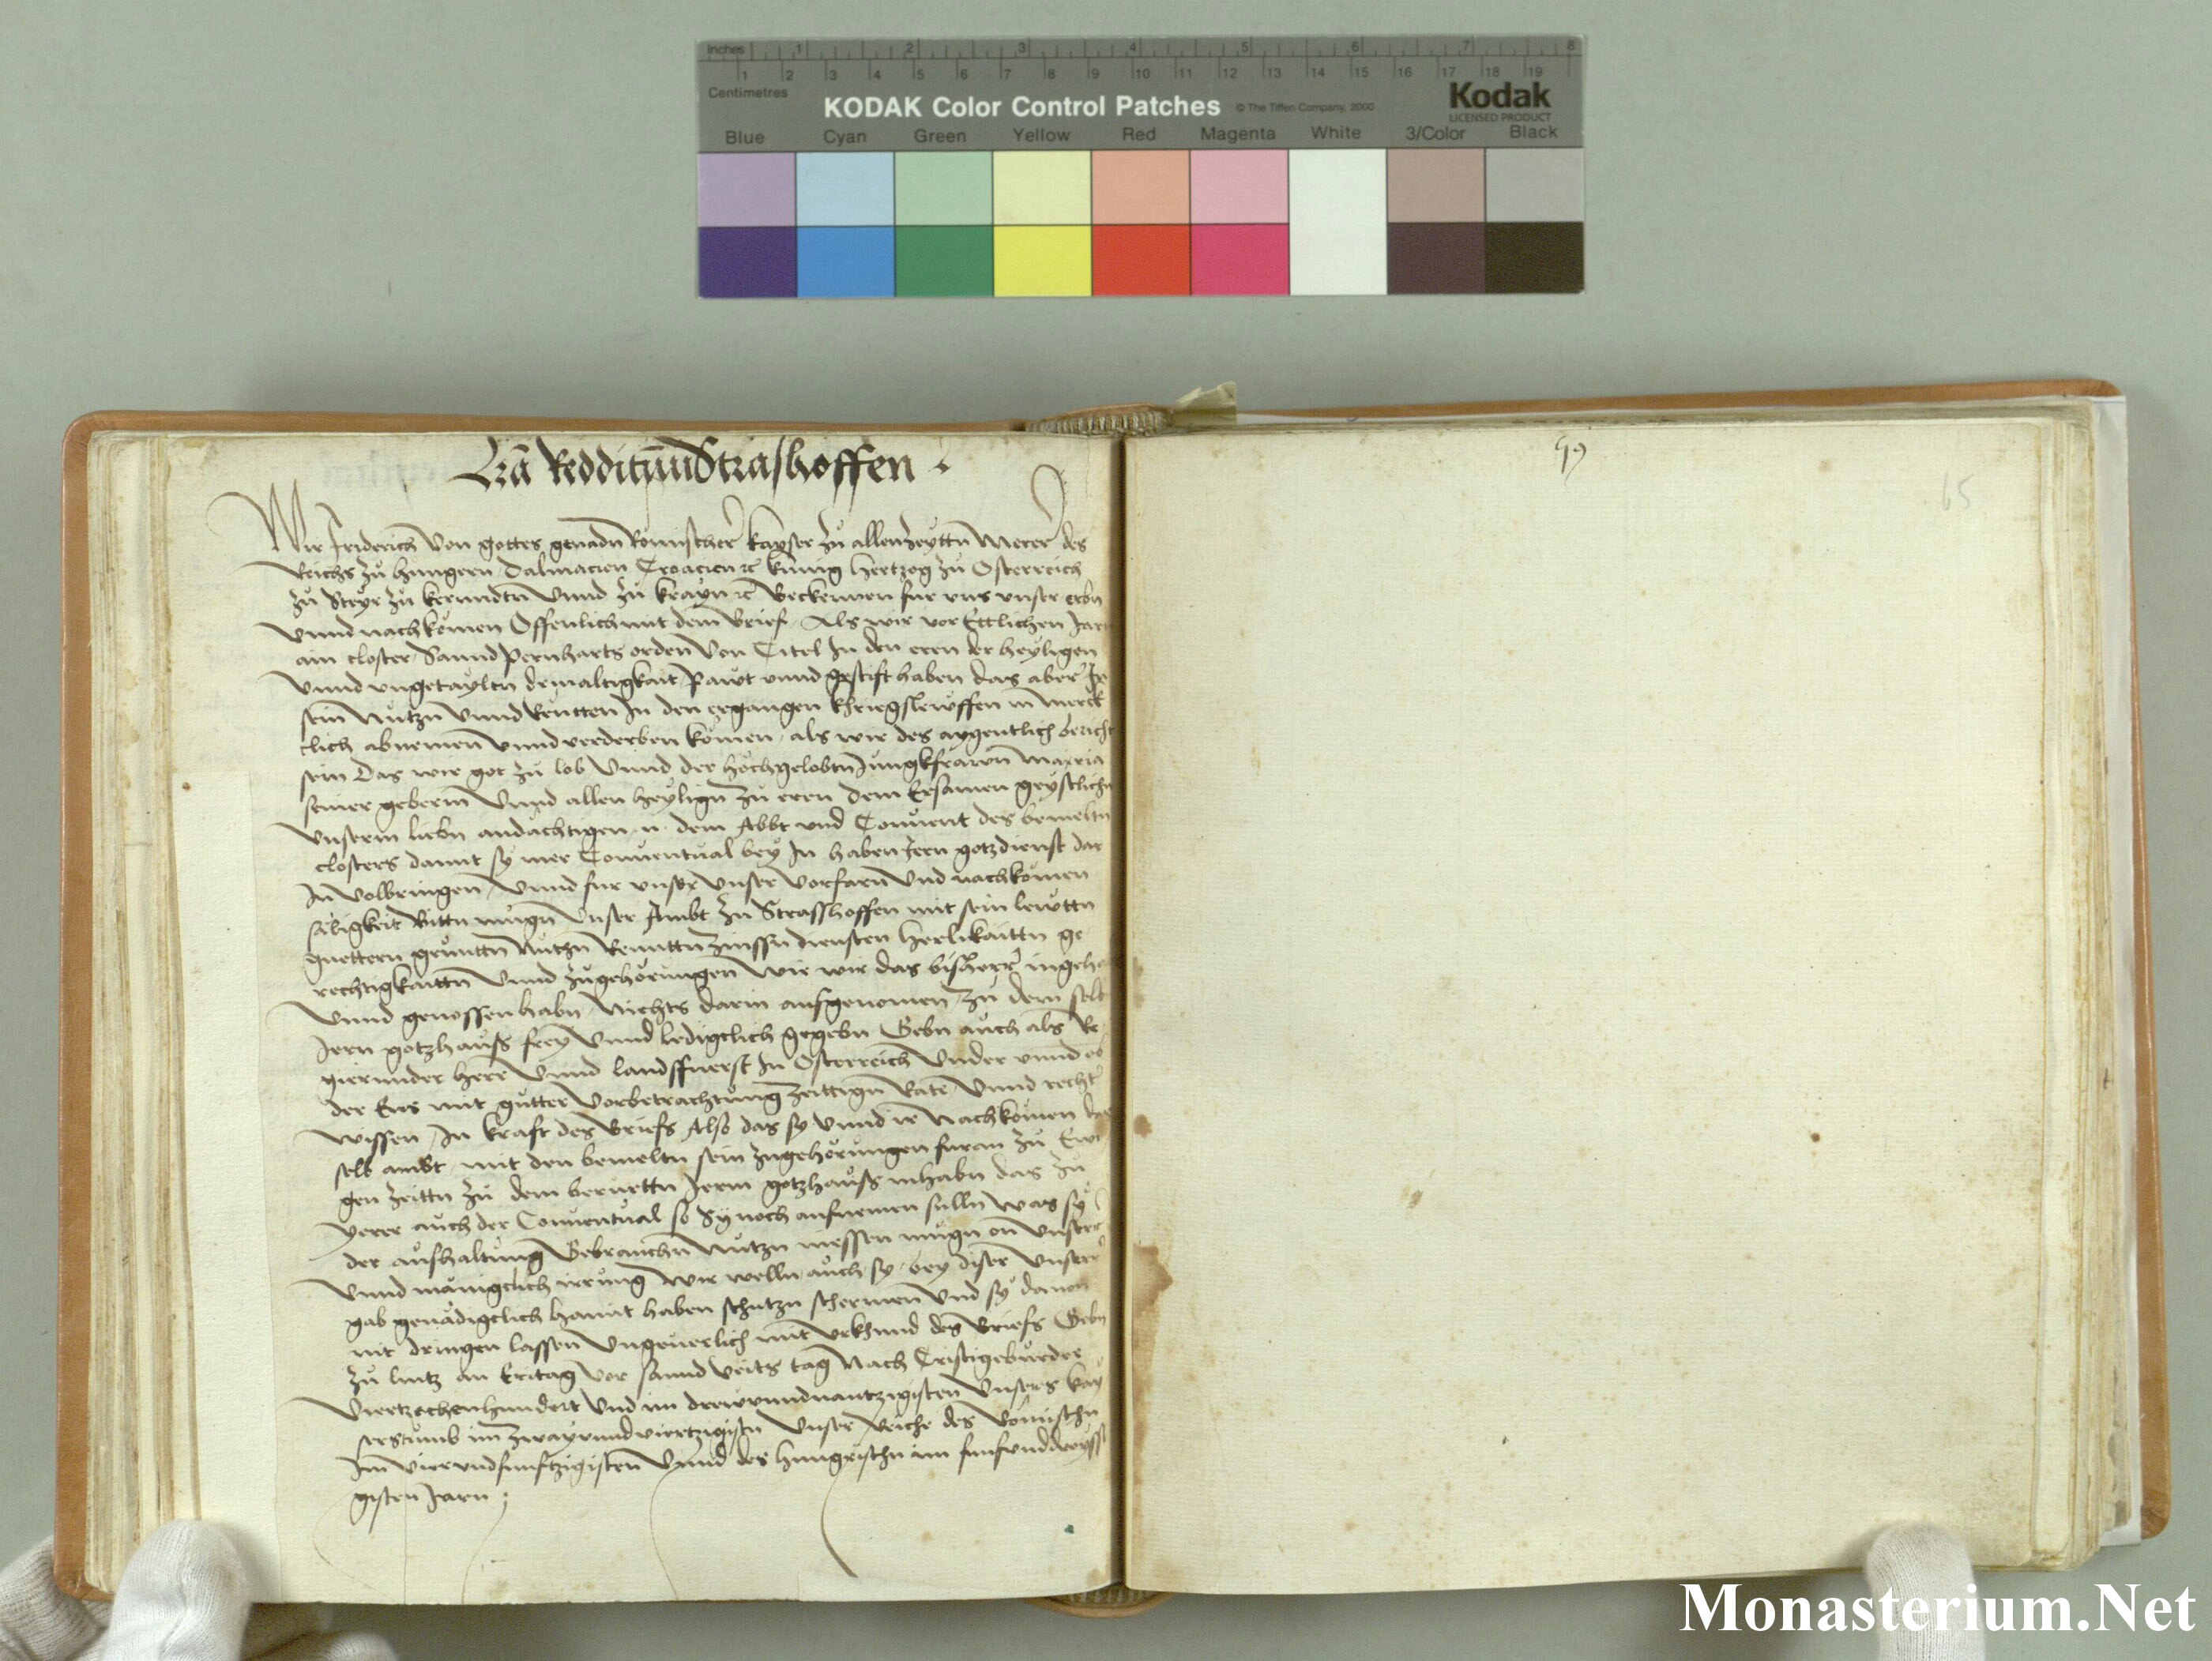 Inches 1 2 3 4 5 6 7 8
1 2 3 4 5 6 7 8 9 10 11 12 13 14 15 16 17 18 19
Centimetres
KODAK Color Control Patches © The Tiffen Company, 2000 Kodak
LICENSED PRODUCT
Blue Cyan Green Yellow Red Magenta White 3/Color Black
Lrã Reddituũ Strashoffen
Wir Friderich Von gottes genadn Romischer kayser zu allenzeyttn Merer des
Reichs zu hungern Dalmacien Croacien ꝛc kunig hertzog zu Osterreich
zu Steyr zu kerundtn Vnnd zu krayn ꝛc Beckennen fur vns vnser erbn
Vnnd nachkomen Offenlich mit dem brief Als wir vor Ettlichen Jarn
ain closter Sannd Pernharts orden Von Citel In den eren der heyligen
Vnnd vngetayltn drinaltigkait Pawt vnnd gestift haben das aber
sein Nutzn Vnnd Rentten In den ergangen khriegslewffen in merck
clich abnemen vnnd verderben komen als wir des aygentlich bericht
sein Das wir got zu lob Vnnd der hochgelobtn Jungkfrawn Maria
seiner geberin Vnnd allen heylign zu eren Dem Ersamen geystlichn
Vnserm liebn andachtigen n dem Abbt vnd Conuent des bemeltn
closters damit sy mer Conuentual bey In haben Jern gotzdienst dar
In volbringen Vnnd fur vnser Vnser Vorfarn Vnd nachkomen
saligkeit Bittn mugn Vnser Ambt zu Strasshoffen mit sein lewttn
guettern gruntn Nutzn Renttn zinssn diensten herlikaittn ge
rechtigkaittn Vnnd zugehorungen Wie wir das bisherr ingeha
Vnnd genossen habn Nichts darin ausgenomen zu dem selb
Jern gotzhauss frey Vnnd ledigclich gegebn Gebn auch als Re
gierunder herr Vnnd landsfuerst In Osterreich Vnder vnnd ob
der Ens mit gutter Vorbetrachtung zeittign Rate Vnnd recht
Wissen In kraft des briefs Also das sy Vnnd ir Nachkomen das
selb ambt mit den bemeltn sein zugehorungen furan zu Ewi
gen zeittn zu dem beruettn Jerm gotzhauss inhabn das zu
auch der Conuentual so Sy noch aufnemen sulln Was sy
der aufhaltung Gebrauchn Nutzn niessen mugn on Vnser
Vnnd manigclich irrung Wir welln auch sy bey diser Vnserr
gab genadigclich hannt haben schutzn schermen Vnd sy dauon
nit dringen lassen Vngeuerlich mit Vrkhund des Briefs Gebn
zu lintz an Eritag Vor sannd Veits tag Nach Cristigeburde
Viertzechenhundert Vnd im drewundnantzigisten Vnsers kay
serstumb im zwayundviertzigistn Vnser Reiche des Romischn
Im Vierundfunftzigisten Vnnd des hungrischn im funfunddreyssi
gisten Jarn
65
Monasterium.Net